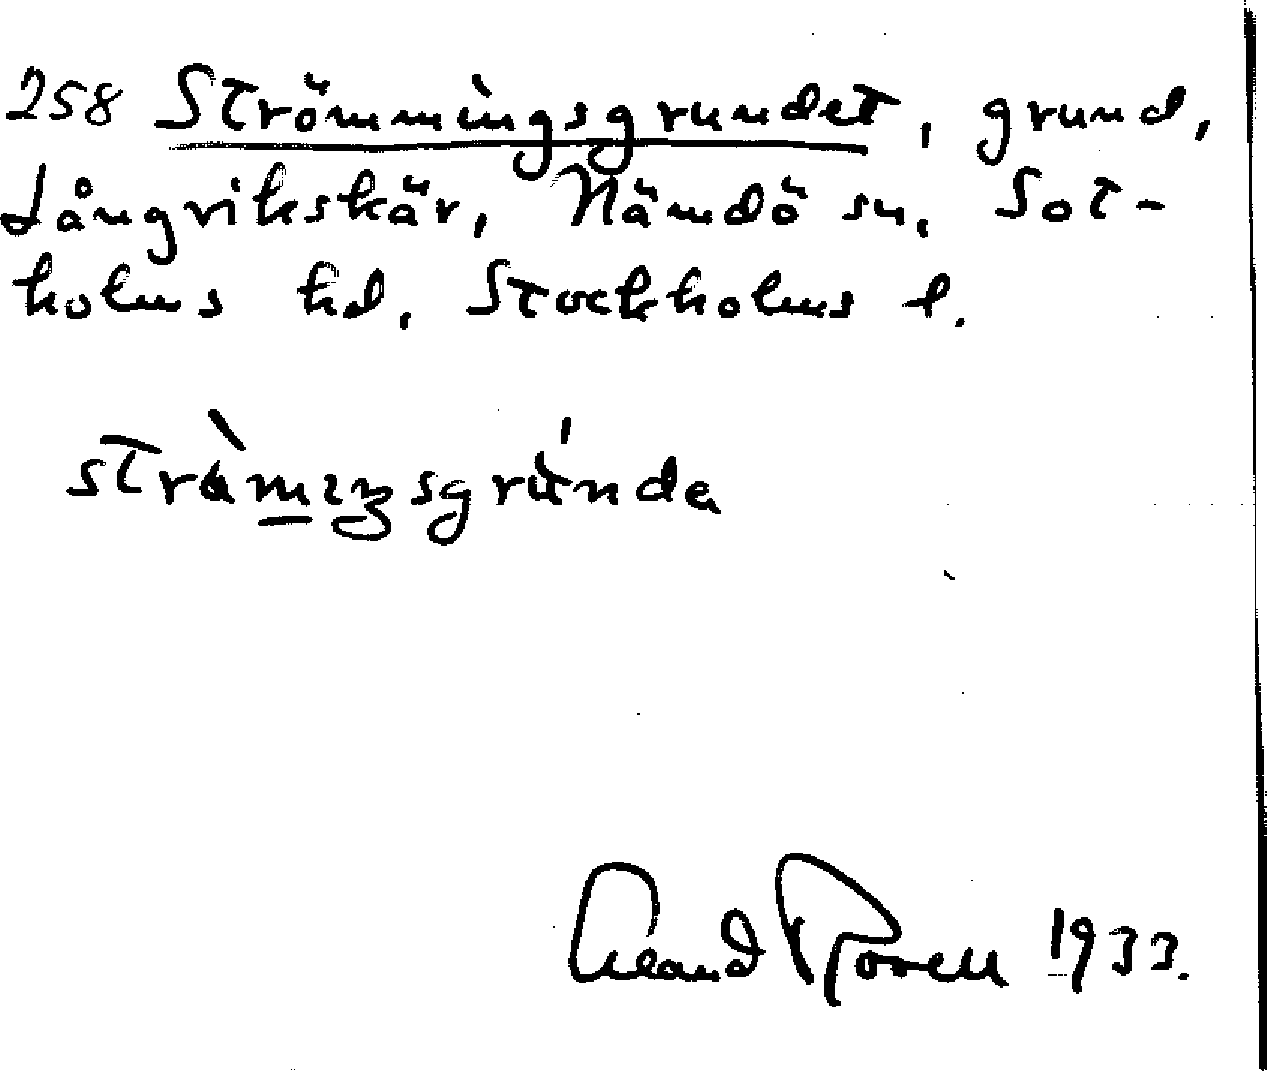 258 Strömmingsgrundet, grund,
Långvikskär, Nämdö sn, Sot-
holms hd, Stockholms l.
Erland Rosell 1933.